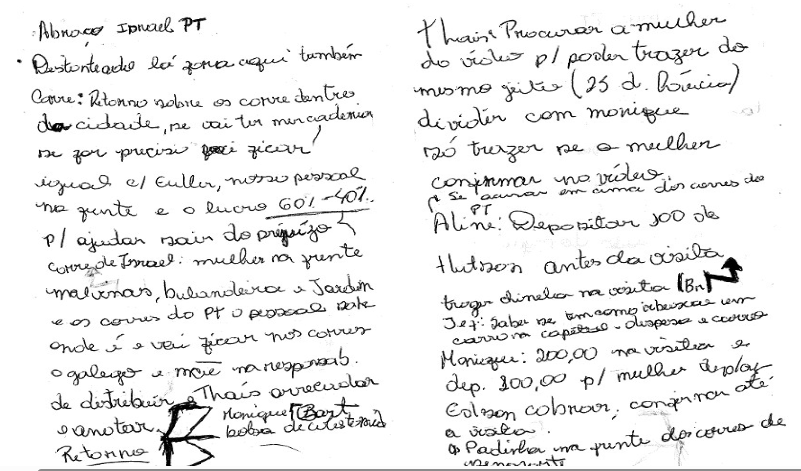 Abraço Isnael PT
• Destonteado lá fora aqui também
Corre: Retorno sobre os corre dentro
da cidade, se vai ter mercadoria
se for preciso ficar
igual c/ Euller, nosso pessoal
na frente e o lucro 60% - 40%
p/ ajudar sair do prejuízo
corre de Isnael: mulher na frente
malvinas, bulandeira e Jardim
e os corres do PT o pessoal sabe
onde é e vai ficar nos corres
o galego e na responsab.
de distribuir e Thais arrecadar
e anotar.
Monique
Retorno
Thais: Procurar a mulher
do vídeo p/ poder trazer do
mesmo jeito (25 d.
dividir com monique
só trazer se a mulher
confirmar no vídeo.
em cima dos corres do
PT
Aline: Depositar 100 do
antes da visita
traga chinelo na visita
Jef: Saber se tem como
carro na capital - e carro
Monique: 200,00 na visita e
dep. 200,00 p/ mulher
Edson cobrar, confirmar até
a visita.
Padinha na frente dos corres de